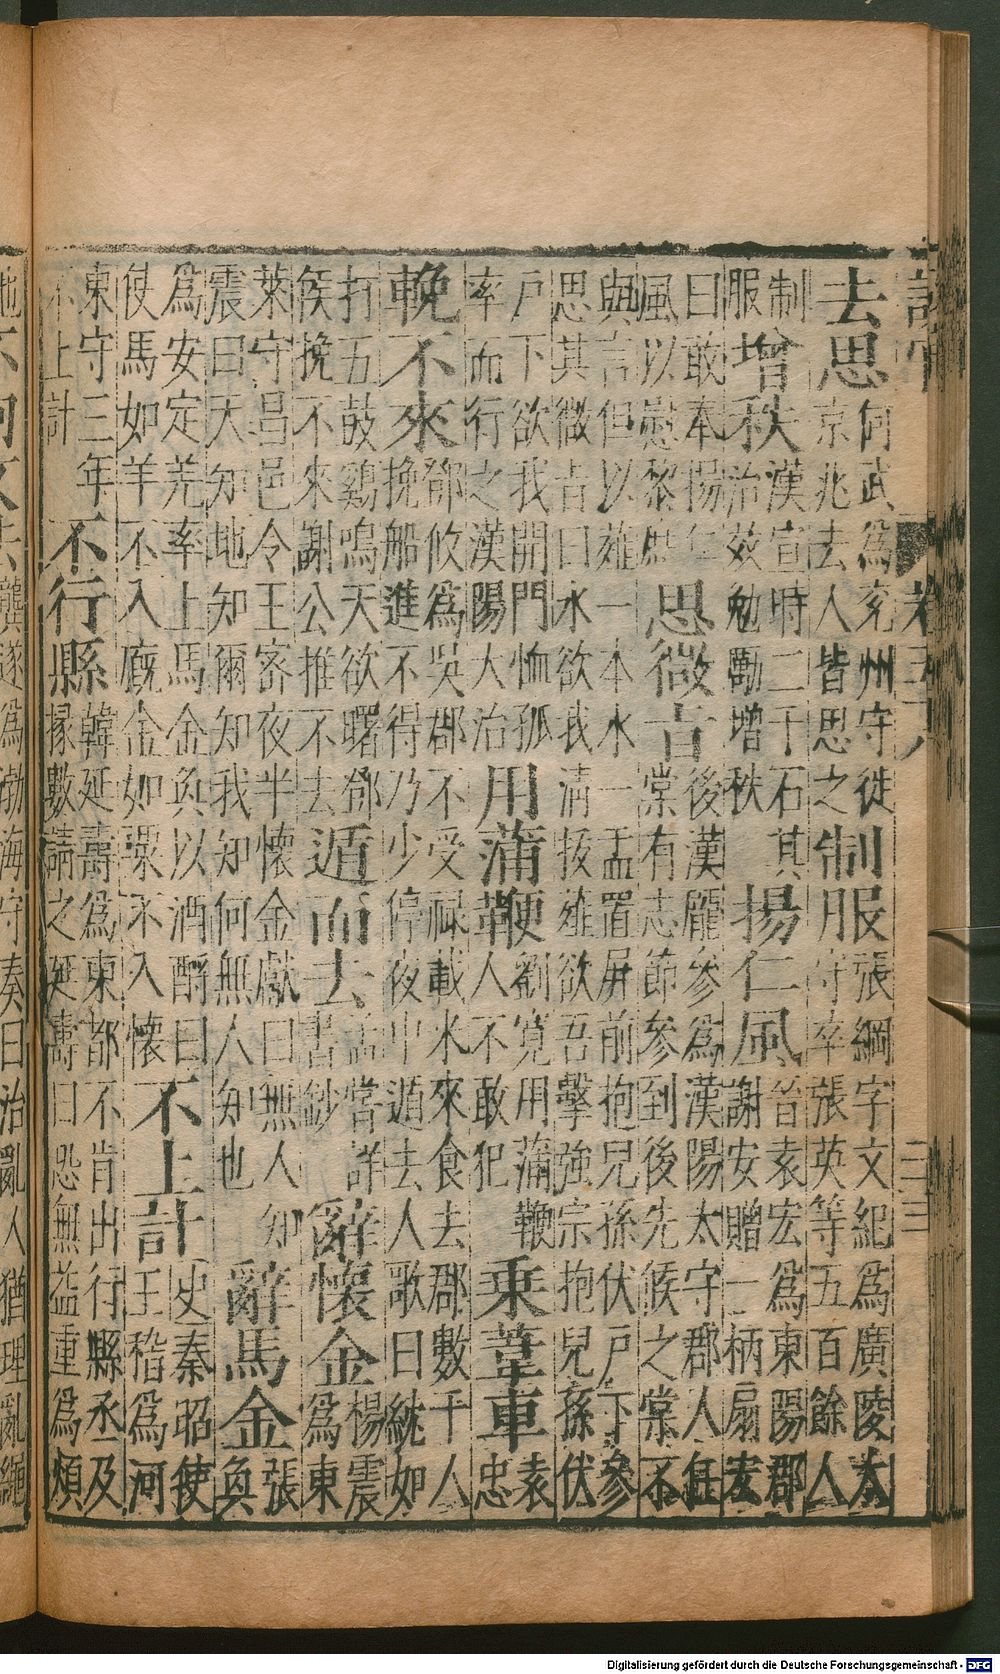 去思 何武為兖州守徙京兆去人皆思之 制服 張綱字文紀為廣陵太守卒張英等五百餘人
制服 增秩 漢宣時二千石其治效勉勵增秩 揚仁風 晉袁宏為東陽郡謝安贈一柄扇宏
曰敢奉揚仁風以慰黎庶 思微旨 後漢龐參為漢陽太守郡人任棠有志節參到後先候之棠不
與言但以薤一本水一盂置屏前抱兒孫伏戶下參思其微旨曰水欲我清拔薤欲吾擊強宗抱兒孫伏
戶下欲我開門恤孤率而行之漢陽大治 用蒲鞭 劉寬用蒲鞭人不敢犯 乗葦車 袁忠
輓不來 鄧攸為吳郡不受祿載水來食去郡數千人挽船進不得乃少停夜中遁去人歌曰紞如
打五鼓鷄鳴天欲曙鄧侯挽不來謝公推不去 遁而去 孟嘗詳書鈔 辭懷金 楊震為東
萊守昌邑令王密夜半懷金獻曰無人知震曰天知地知爾知我知何無人知也 辭馬金 張奐
為安定羌率上馬金奐以酒酹曰使馬如羊不入廐金如粟不入懷 不上計 史秦昭使王稽為河
東守三年不上計 不行縣 韓延壽為東都不肯出行縣丞及掾數請之延壽曰恐無益重為煩
龔遂為渤海守奏曰治亂人猶理亂繩
Digitalisierung gefördert durch die Deutsche Forschungsgemeinschaft - DFG